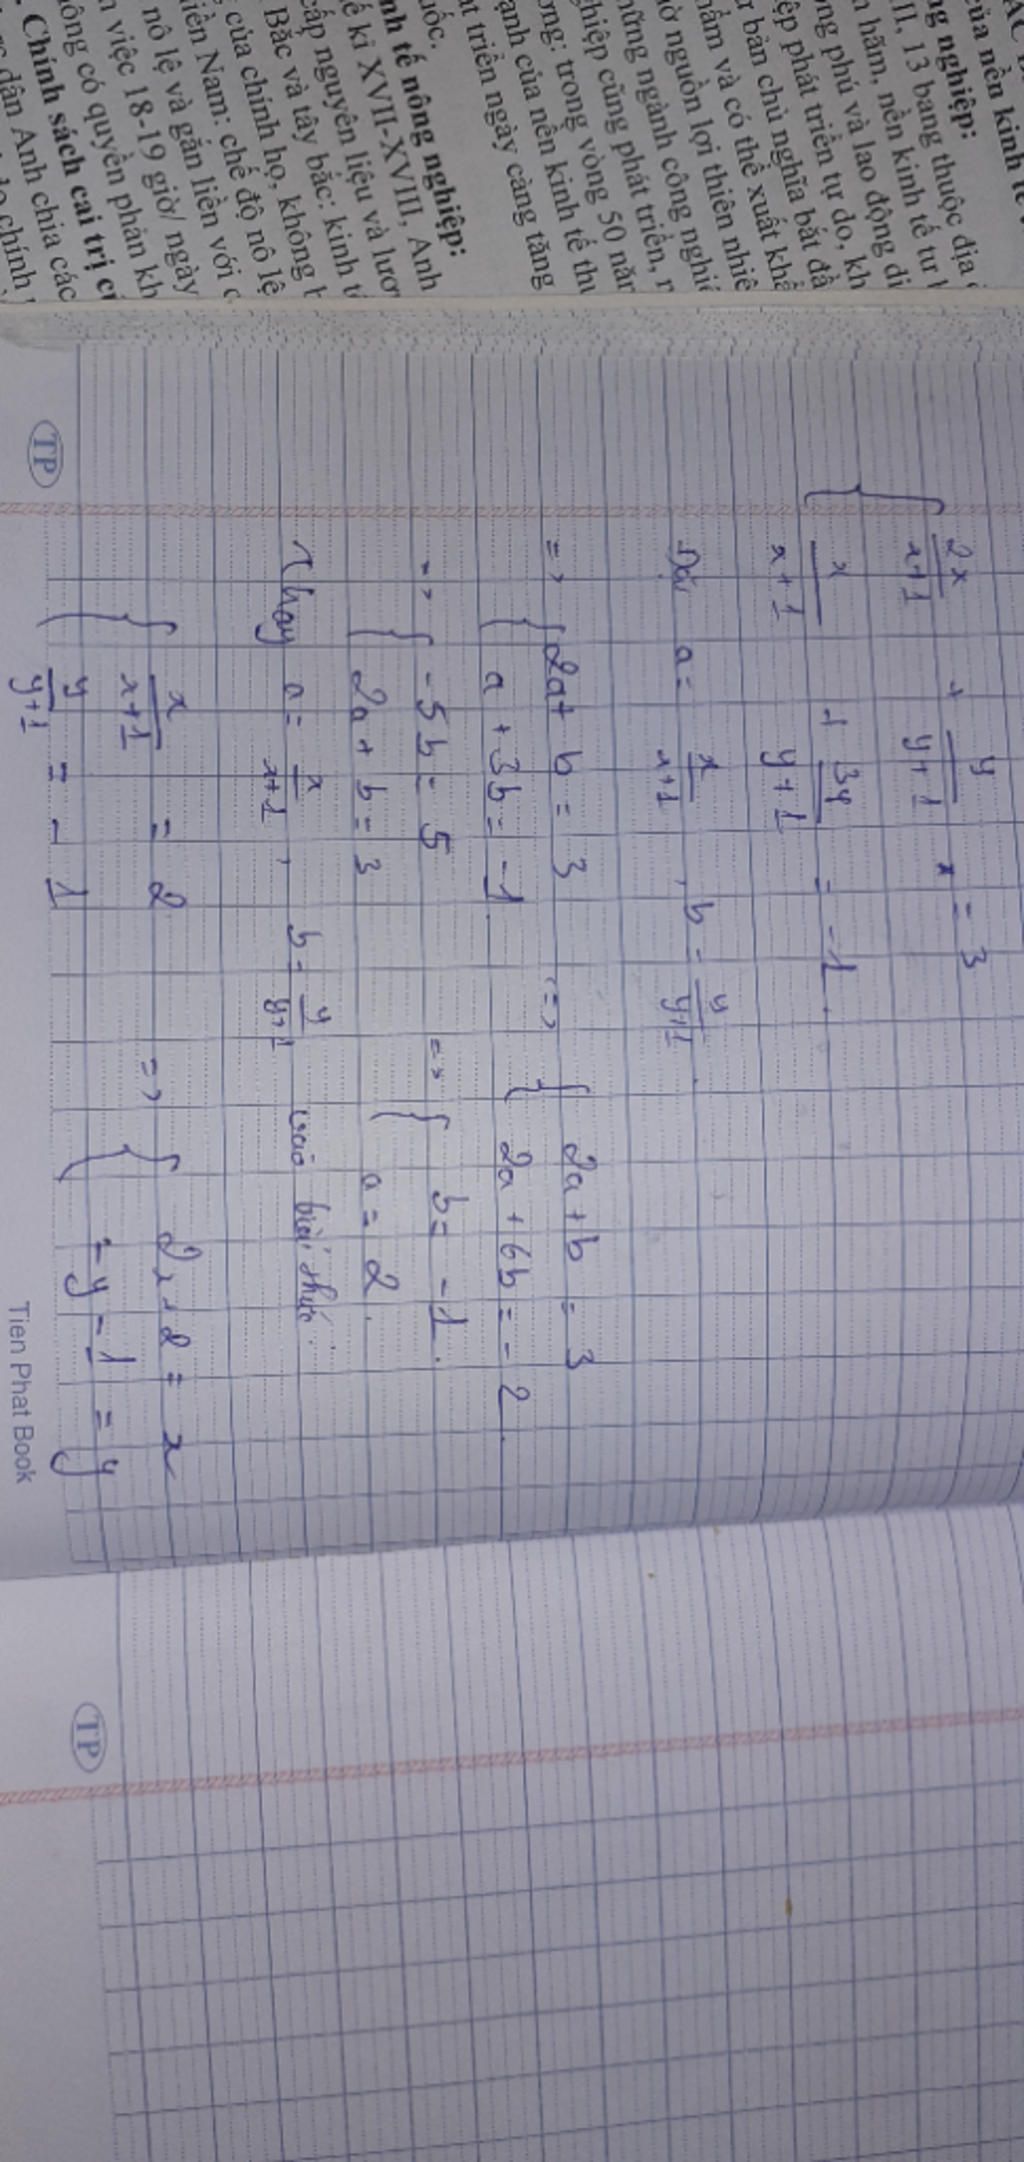 AC
của nền kinh tế
ng nghiệp:
II, 13 bang thuộc địa
m hãm, nền kinh tế tư
ng phú và lao động di
ệp phát triển tự do, kh
r bản chủ nghĩa bắt đầ
hẩm và có thể xuất khẩ
ờ nguồn lợi thiên nhiê
hững ngành công nghiệ
ghiệp cũng phát triển, r
ơng: trong vòng 50 năr
ạnh của nền kinh tế thu
t triển ngày càng tăng
uốc.
nh tế nông nghiệp:
ế kỉ XVII-XVIII, Anh
cấp nguyên liệu và lươ
Bắc và tây bắc: kinh t
của chính họ, không
iền Nam: chế độ nô lệ
nô lệ và gắn liền với c
n việc 18-19 giờ/ ngày
ông có quyền phản kh
. Chính sách cai trị c
c dân Anh chia các
chính
{ 2x/x+1 + y/y+1 = 3
x/x+1 + 3y/y+1 = -1.
Đặt a = x/x+1 , b = y/y+1.
=> { 2a + b = 3 <=> { 2a + b = 3
a + 3b = -1. 2a + 6b = -2.
=> { -5b = 5 => { b = -1.
2a + b = 3 a = 2.
Thay a = x/x+1 , b = y/y+1 vào biểu thức:
{ x/x+1 = 2 => { 2x+2 = x
y/y+1 = -1 -y-1 = y
TP
Tien Phat Book
TP